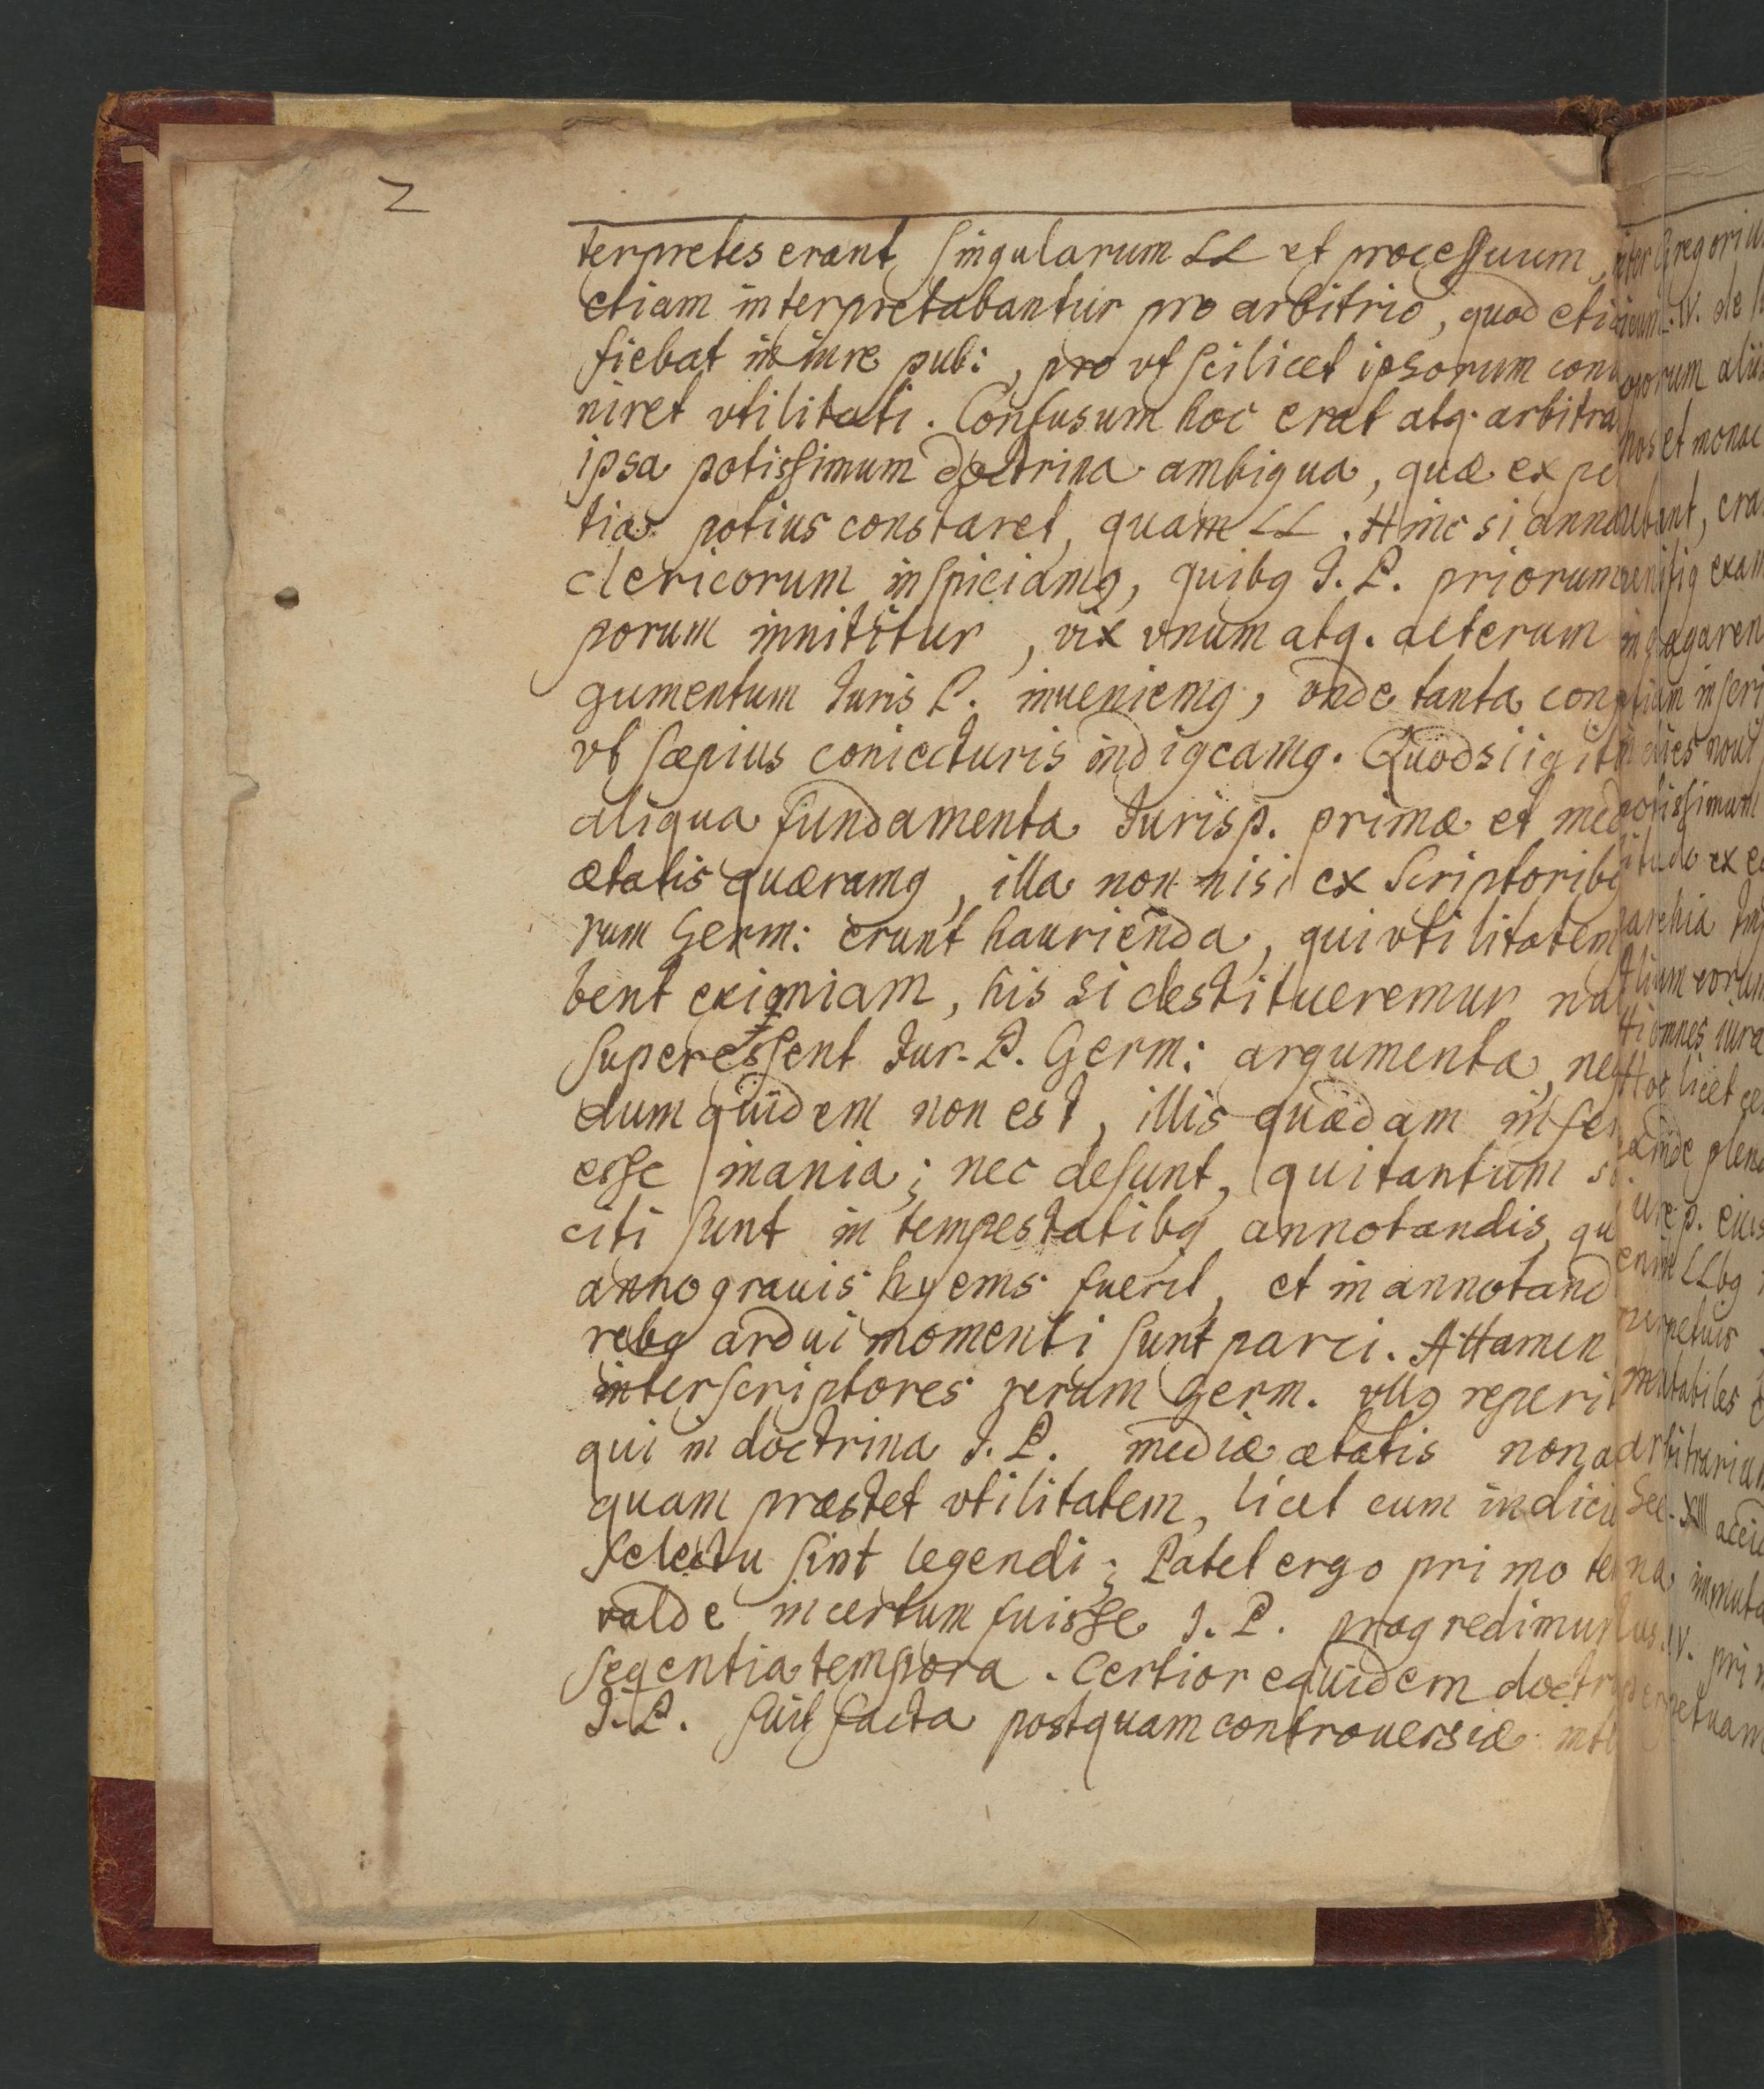 2
terpretes erant singularum LL et processuum,
etiam interpretabantur pro arbitrio, quod eti
fiebat in iure pub:, pro vt scilicet ipsorum con
niret vtilitati. Confusum hoc erat atq. arbitra
ipsa potissimum doctrina ambigua, quæ ex pe
tia potius constaret, quam LL. Hinc si anna
clericorum inspiciamq, quibq J. P. priorum
porum innititur, vix vnum atq. alterum
gumentum Juris P. inueniemq, vnde tanta con
vt sæpius coniecturis indigeamq. Quodsi igit
aliqua fundamenta Jurisp. primæ et med
ætatis quæramq, illa non nisi ex Scriptoribq
rum Germ: erunt haurienda, qui vtilitatem
bent eximiam, his si destitueremur nu
superessent Jur. P. Germ: argumenta, ne
dum quidem non est, illis quædam inse
esse inania; nec desunt, qui tantum so
citi sunt in tempestatibq annotandis, qu
anno grauis hyems fuerit, et in annotand
rebq ardui momenti sunt parci. Attamen
inter scriptores rerum Germ. vllq reperit
qui in doctrina J. P. mediæ ætatis non a
quam præstet vtilitatem, licet cum iudicio
selectu sint legendi; Patet ergo primo te
valde incertum fuisse J. P. progredimur
seqentia tempora. Certior equidem doctr
J. P. fuit facta postquam controuersiæ int
inter Gregoriu
IV. de
orum aliis
hos et monac
ebant, era
exam
indagaren
tiam inseri
dies noui
potissimum
itudo ex e
archia Im
tium eorum
omnes iura
Hoc licet ce
einde plena
iure p. eius
enim LLbq
perpetuis
mutabiles
arbitrariam
Sec. XIII acci
na immuta
IV. pri
perpetuam